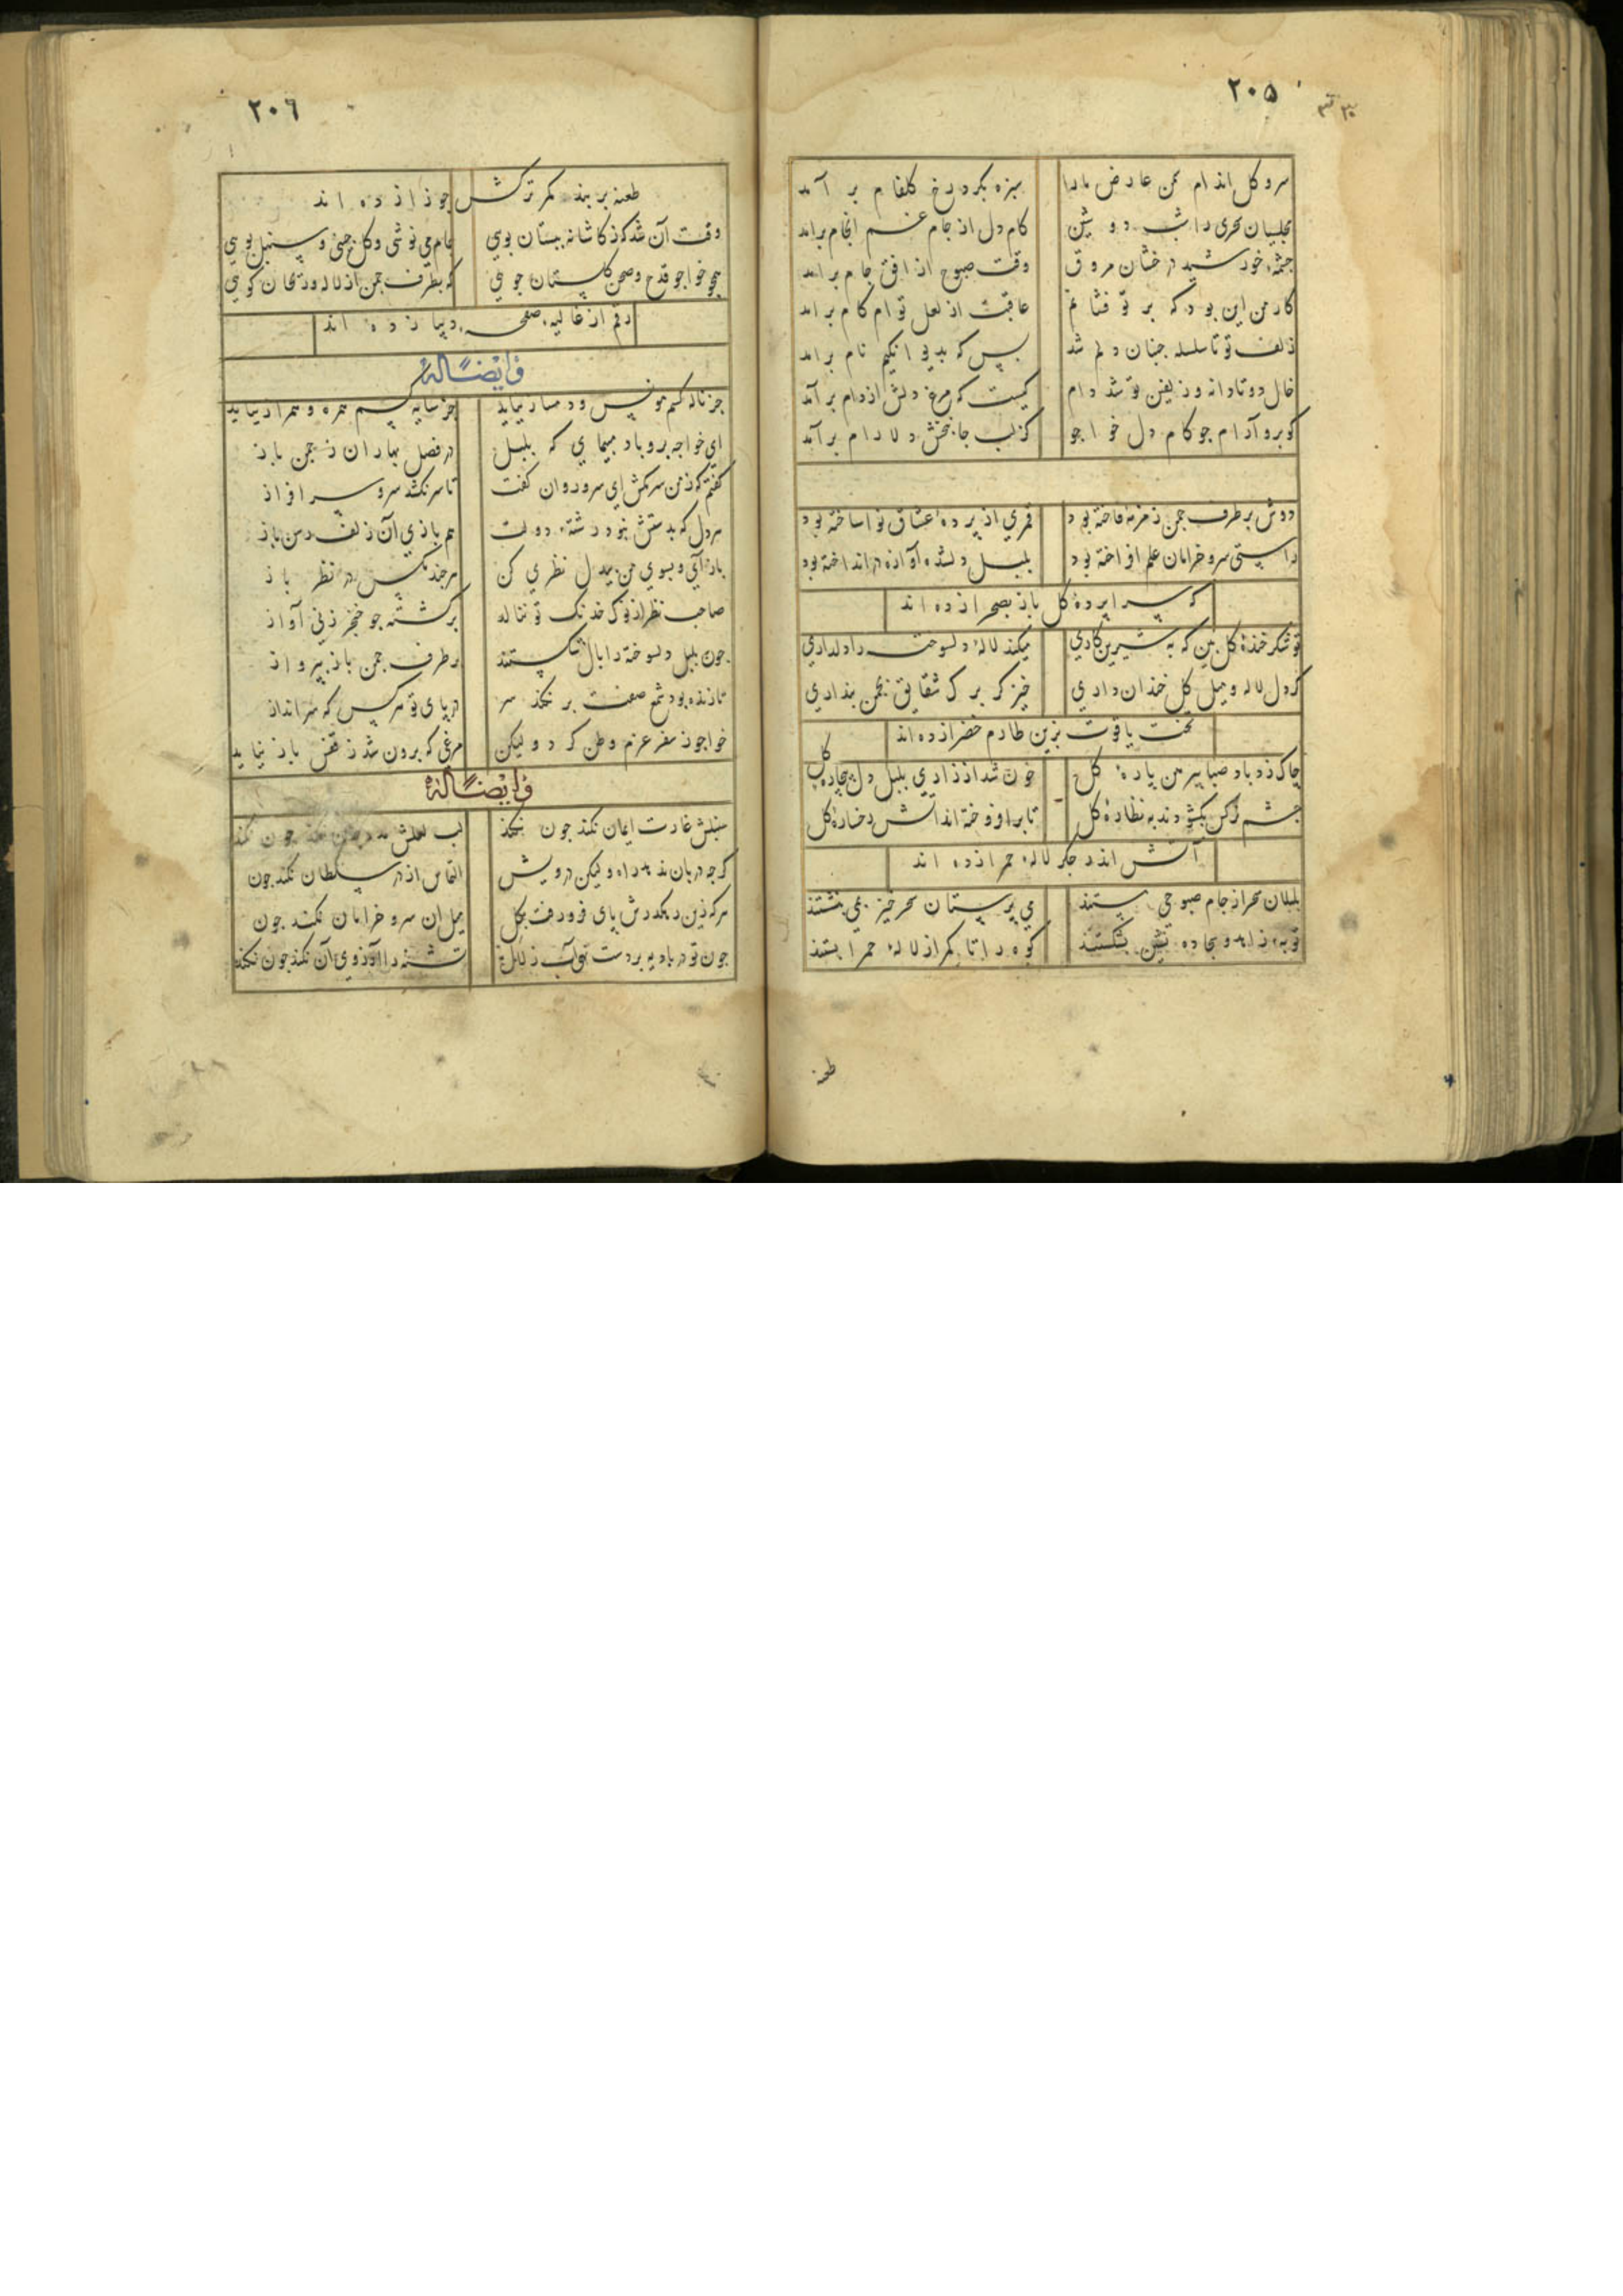 ۲۰۵
سرو گل اندام سمن عارض ما را سبزه بگرد رخ گلفام بر آمد
مجلسیان سحری را شب دوشین کام دل از جام غم انجام براند
چشمهٔ خورشید درخشان مروق وقت صبوح از افق جام براند
کار من این بود که بر تو فشانم عاقبت از لعل توام کام براند
زلف تو تا سلسله جنبان دلم شد بس که بدیوانگیم نام براند
خال دو تا دانه و زلفین تو شد دام کیست که مرغ دلش از دام بر آند
کو برو آرام جو کام دل خواجو کز لب جانبخش دلارام برآند
دوش بر طرف چمن زمزمهٔ فاخته بود قمری از پردهٔ عشاق نوا ساخته بود
راستی سرو خرامان علم افراخته بود بلبل دلشده آوازه در انداخته بود
که سراپردهٔ گل باز بصحرا زده اند
تو شکر خندهٔ گل بین که به شیرین کاری میکند لالهٔ دلسوخته را دلداری
گر دل لاله و میل گل خندان داری خیز کز برگ شقایق بچمن بنداری
تخت یاقوت برین طارم خضرا زده اند
چاک زد باد صبا پیرهن پارهٔ گل خون شد از زاری بلبل دل بیچاره گل
چشم نرگس بگشودند به نظارهٔ گل تا بر افروخته اند آتش رخسارهٔ گل
آتش اندر جگر لالهٔ حمرا زده اند
بلبلان سحر از جام صبوحی مستند می پرستان سحر خیز بمی بنشستند
توبهٔ زاهد و سجاده نشین بشکستند کوه را تا کمر از لالهٔ حمرا بستند
طعنه
۲۰۶
طعنه بر بند کمر ترکش جوزا زده اند
وقت آن شد که ز کاشانه ببستان بویی جام می نوشی و گل چینی و سنبل بویی
همچو خواجو قدح و صحن گلستان جویی که بطرف چمن از لاله و ریحان گویی
رقم از غالیه بر صفحهٔ دیبا زده اند
و ایضاً له
جز ناله کسم مونس و دمساز نیاید جز سایه کسم همره و همراز نیاید
ای خواجه برو باد مپیمای که بلبل در فصل بهاران ز چمن باز
گفتم که ز من سر مکش ای سرو روان گفت تا سر نکشد سرو سرافراز
هر دل که بدستش نبود رشتهٔ دولت هم بازی آن زلف رسن باز
باز آی و بسوی من بیدل نظری کن هر چند مگس در نظر باز
صاحب نظر از نوک خدنگ تو ننالد بر کشته چو خنجر زنی آواز
چون بلبل دلسوخته را بال شکستند در طرف چمن باز بپرواز
تا زنده بود شمع صفت بر نکند سر در پای تو هر کس که سرانداز
خواجو ز سفر عزم وطن کرد و لیکن مرغی که برون شد ز قفس باز نیاید
و ایضاً له
سنبلش غارت ایمان نکند چون نکند لب لعلش مدد جان نکند چون نکند
گرچه دربان ندهد راه و لیکن درویش التماس از در سلطان نکند چون
هر که زین رهگذرش پای فرو رفت بگل میل آن سرو خرامان نکند چون
چون تو در بادیه بر دست نهی آب زلال تشنه را آرزوی آن نکند چون نکند